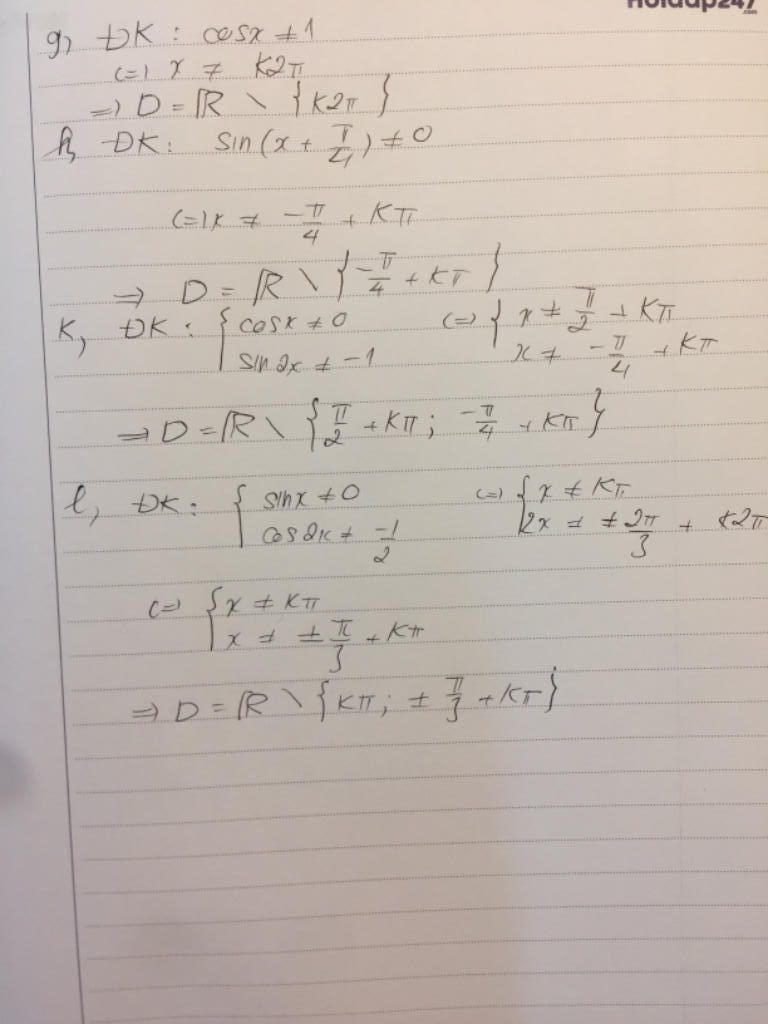 Hoidap247.com
g, ĐK : cosx ≠ 1
(=) x ≠ K2π
=) D = ℝ \ {K2π}
h, ĐK : sin(x + π/4) ≠ 0
(=) x ≠ -π/4 + Kπ
=> D = ℝ \ {-π/4 + Kπ}
K, ĐK : { cosx ≠ 0 (=) { x ≠ π/2 + Kπ
sin2x ≠ -1 x ≠ -π/4 + Kπ
=> D = ℝ \ {π/2 + Kπ ; -π/4 + Kπ}
l, ĐK : { sinx ≠ 0 (=) { x ≠ Kπ
cos2x ≠ -1/2 2x ≠ ±2π/3 + K2π
(=) { x ≠ Kπ
x ≠ ±π/3 + Kπ
=> D = ℝ \ {Kπ ; ±π/3 + Kπ}